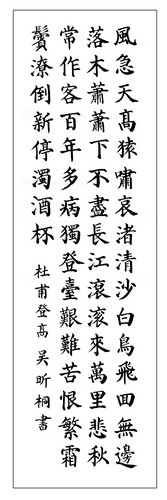 風急天髙猿嘯哀渚清沙白鳥飛囬無邊
落木蕭蕭下不盡長江滾滾來萬里悲秋
常作客百年多病獨登臺艱難苦恨繁霜
鬢潦倒新停濁酒杯 杜甫登髙 吴昕桐書